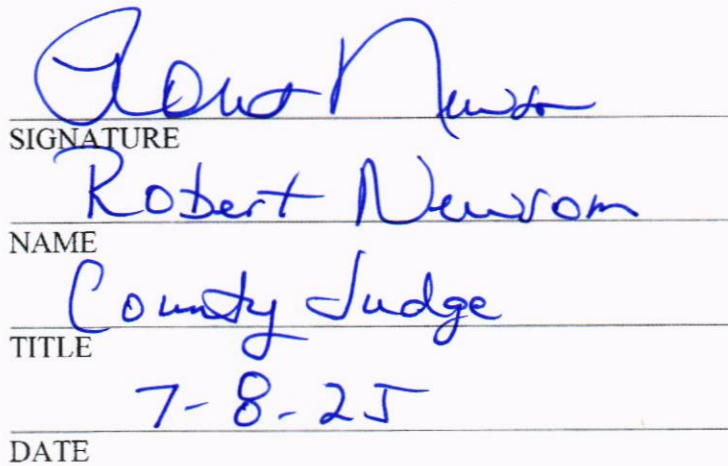 SIGNATURE
Robert Newsom
NAME
County Judge
TITLE
7-8-25
DATE